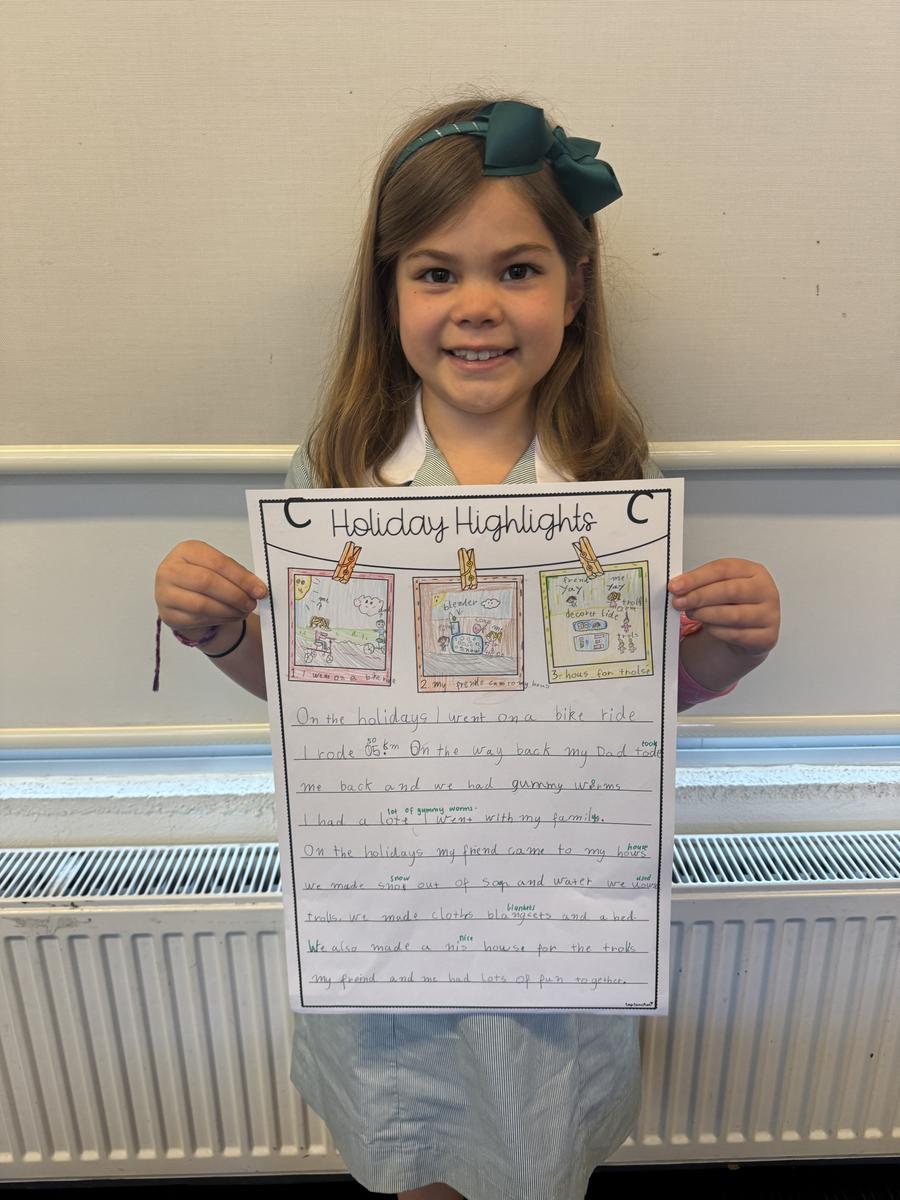 Holiday Highlights
me
blender
frend me
yay yay
trolls
trols
1. I went on a bike ride
2. my frende came to my hous
3. hous for trolse
On the holidays I went on a bike ride
50
I rode 05 km On the way back my Dad tode
took
me back and we had gummy worms
lot of gummy worms.
I had a lote I went with my family.
house
On the holidays my friend came to my hows
snow used
we made snot out of sop and water we
blankets
trolls. we made cloths blangcets and a bed.
nice
We also made a nis howse for the trolls
my freind and me had lots of fun together.